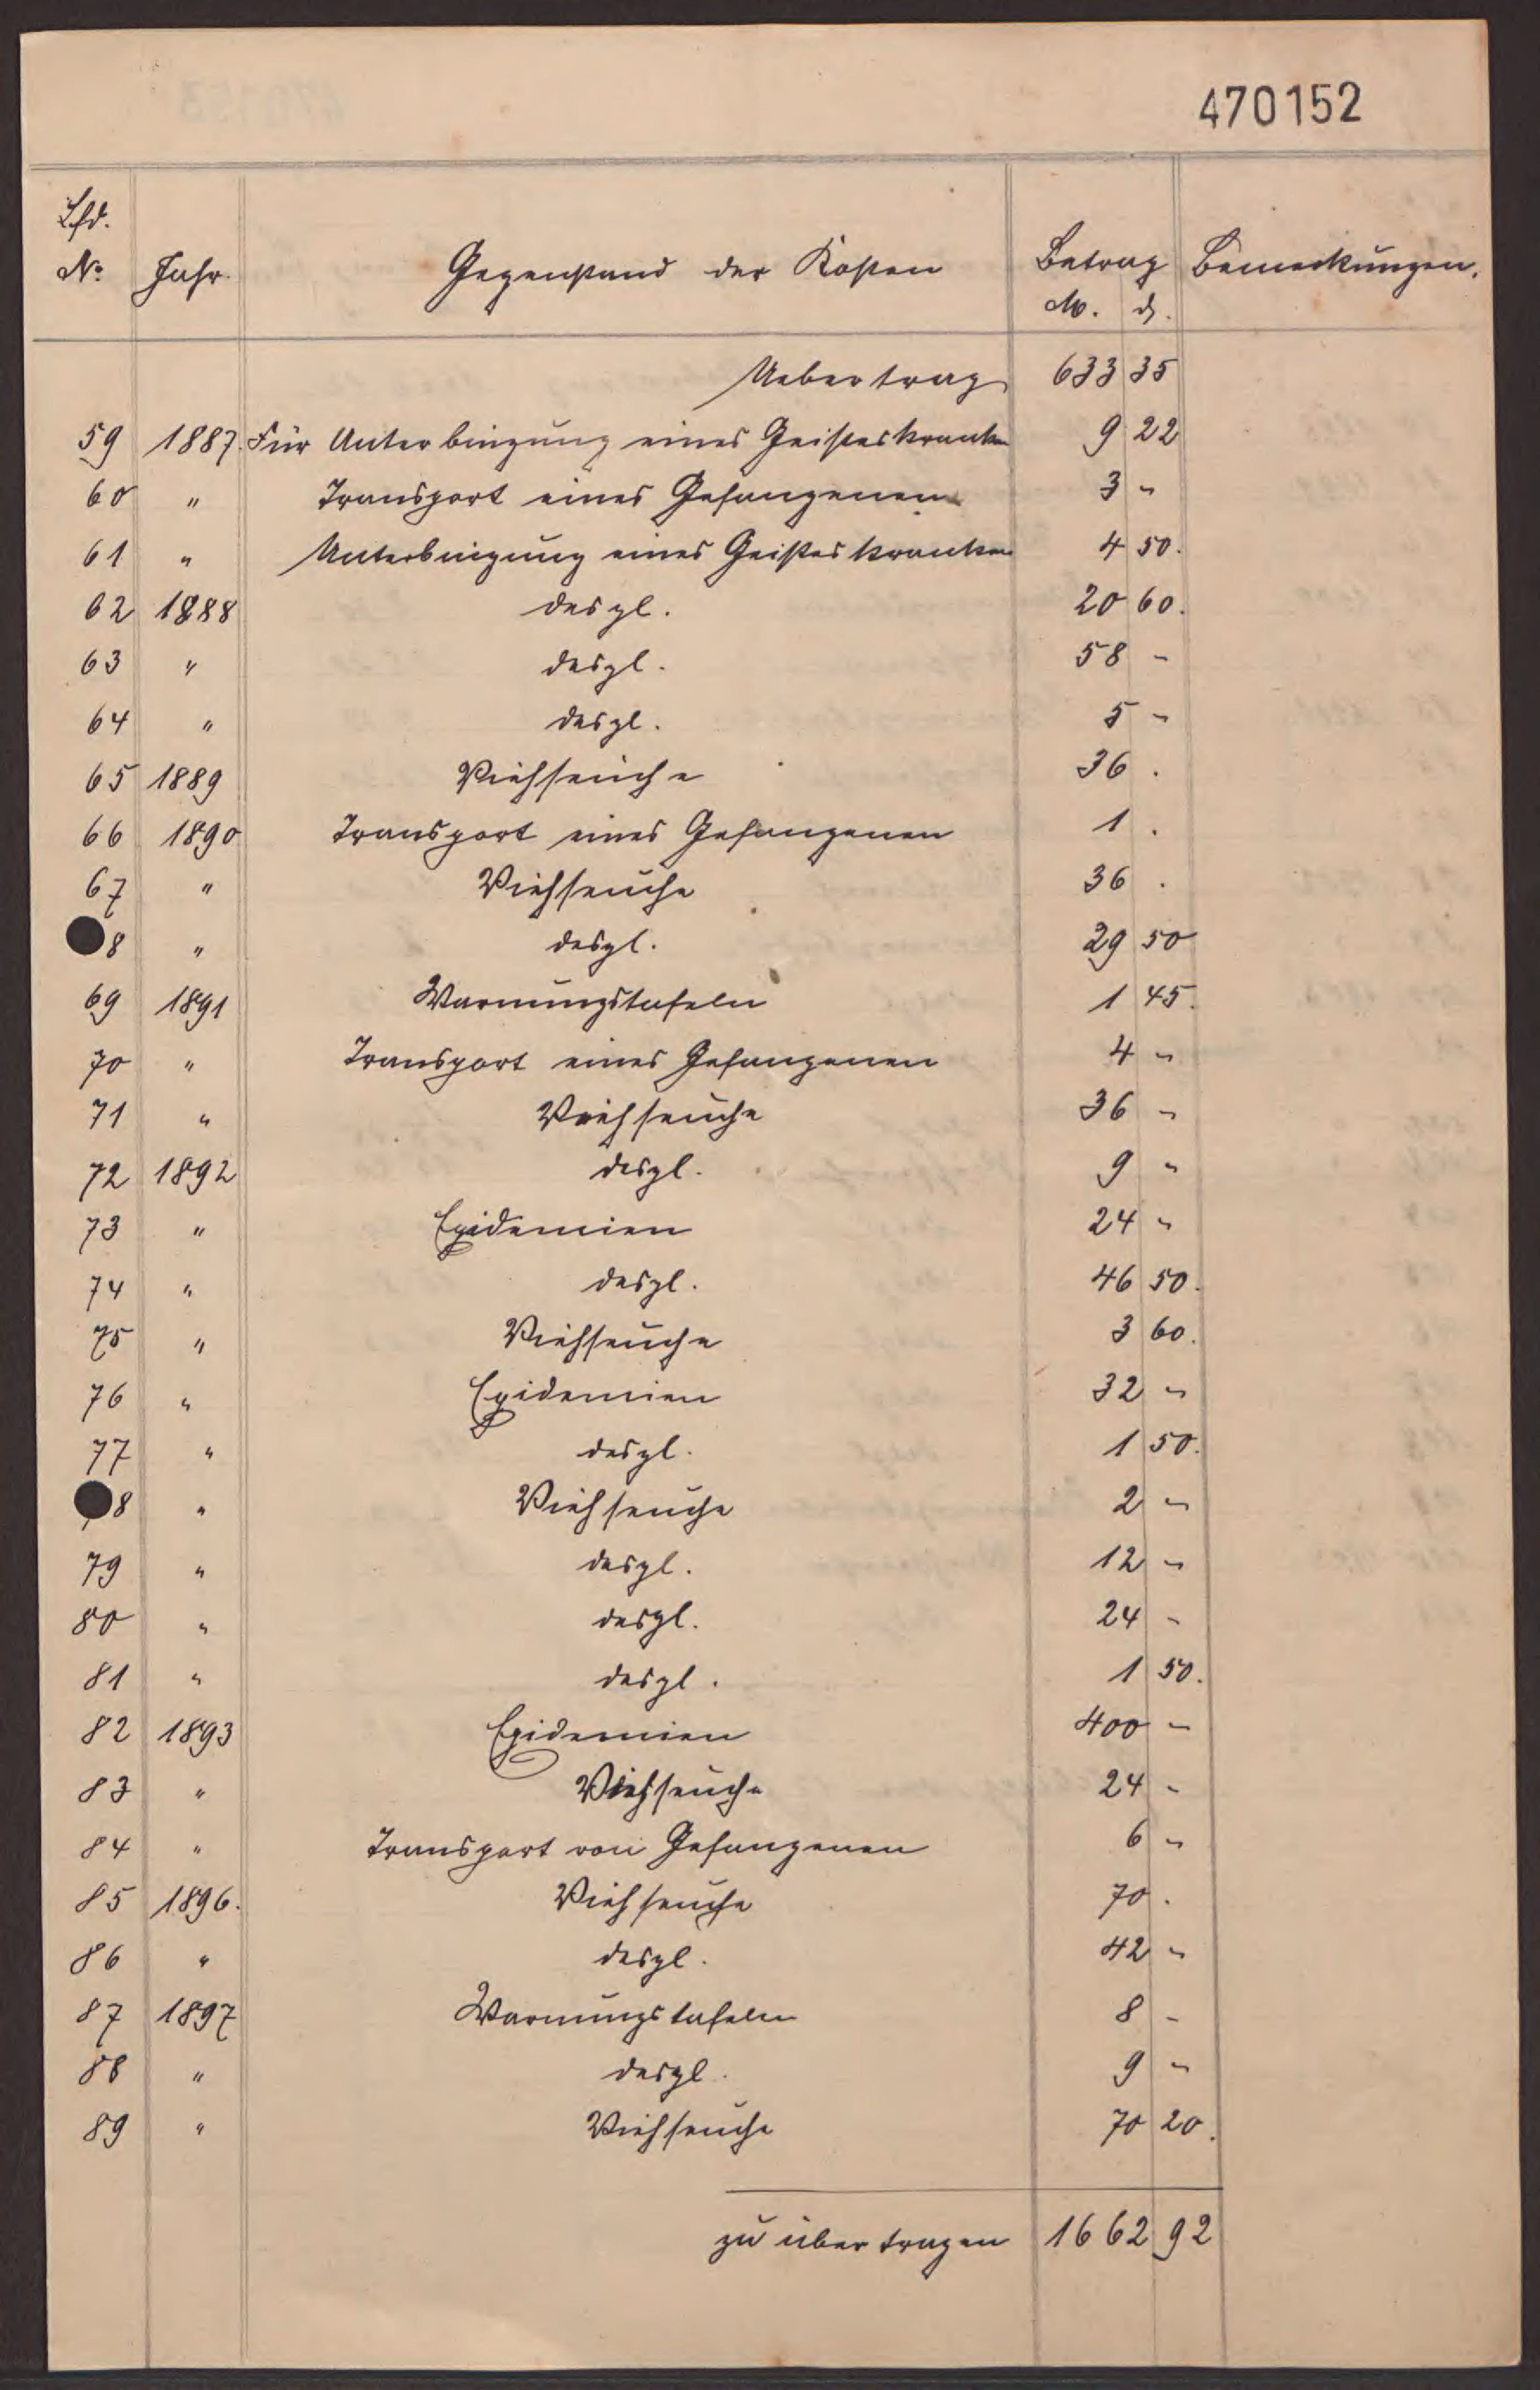 470152
Lfd.
No Jahr. Gegenstand der Kosten Betrag Bemerkungen.
M. ₰.
Uebertrag 633 35
59 1887. Für Unterbingung eines Geisteskranken 9 22
60 " Transport eines Gefangenen 3 "
61 " Unterbingung eines Geisteskranken 4 50.
62 1888 desgl. 20 60.
63 " desgl. 58 -
64 " desgl. 5 -
65 1889 Viehseuche 36 .
66 1890 Transport eines Gefangenen 1 .
67 " Viehseuche 36 .
8 " desgl. 29 50
69 1891 Warnungstafeln 1 45.
70 " Transport eines Gefangenen 4 "
71 " Viehseuche 36 -
72 1892 desgl. 9 "
73 " Epidemien 24 "
74 " desgl. 46 50.
75 " Viehseuche 3 60.
76 " Epidemien 32 "
77 " desgl. 1 50.
8 " Viehseuche 2 "
79 " desgl. 12 "
80 " desgl. 24 -
81 " desgl. 1 50.
82 1893 Epidemien 400 -
83 " Viehseuche 24 -
84 " Transport von Gefangenen 6 "
85 1896. Viehseuche 70 .
86 " desgl. 42 "
87 1897 Warnungstafeln 8 -
88 " desgl. 9 "
89 " Viehseuche 70 20.
zu übertragen 1662 92